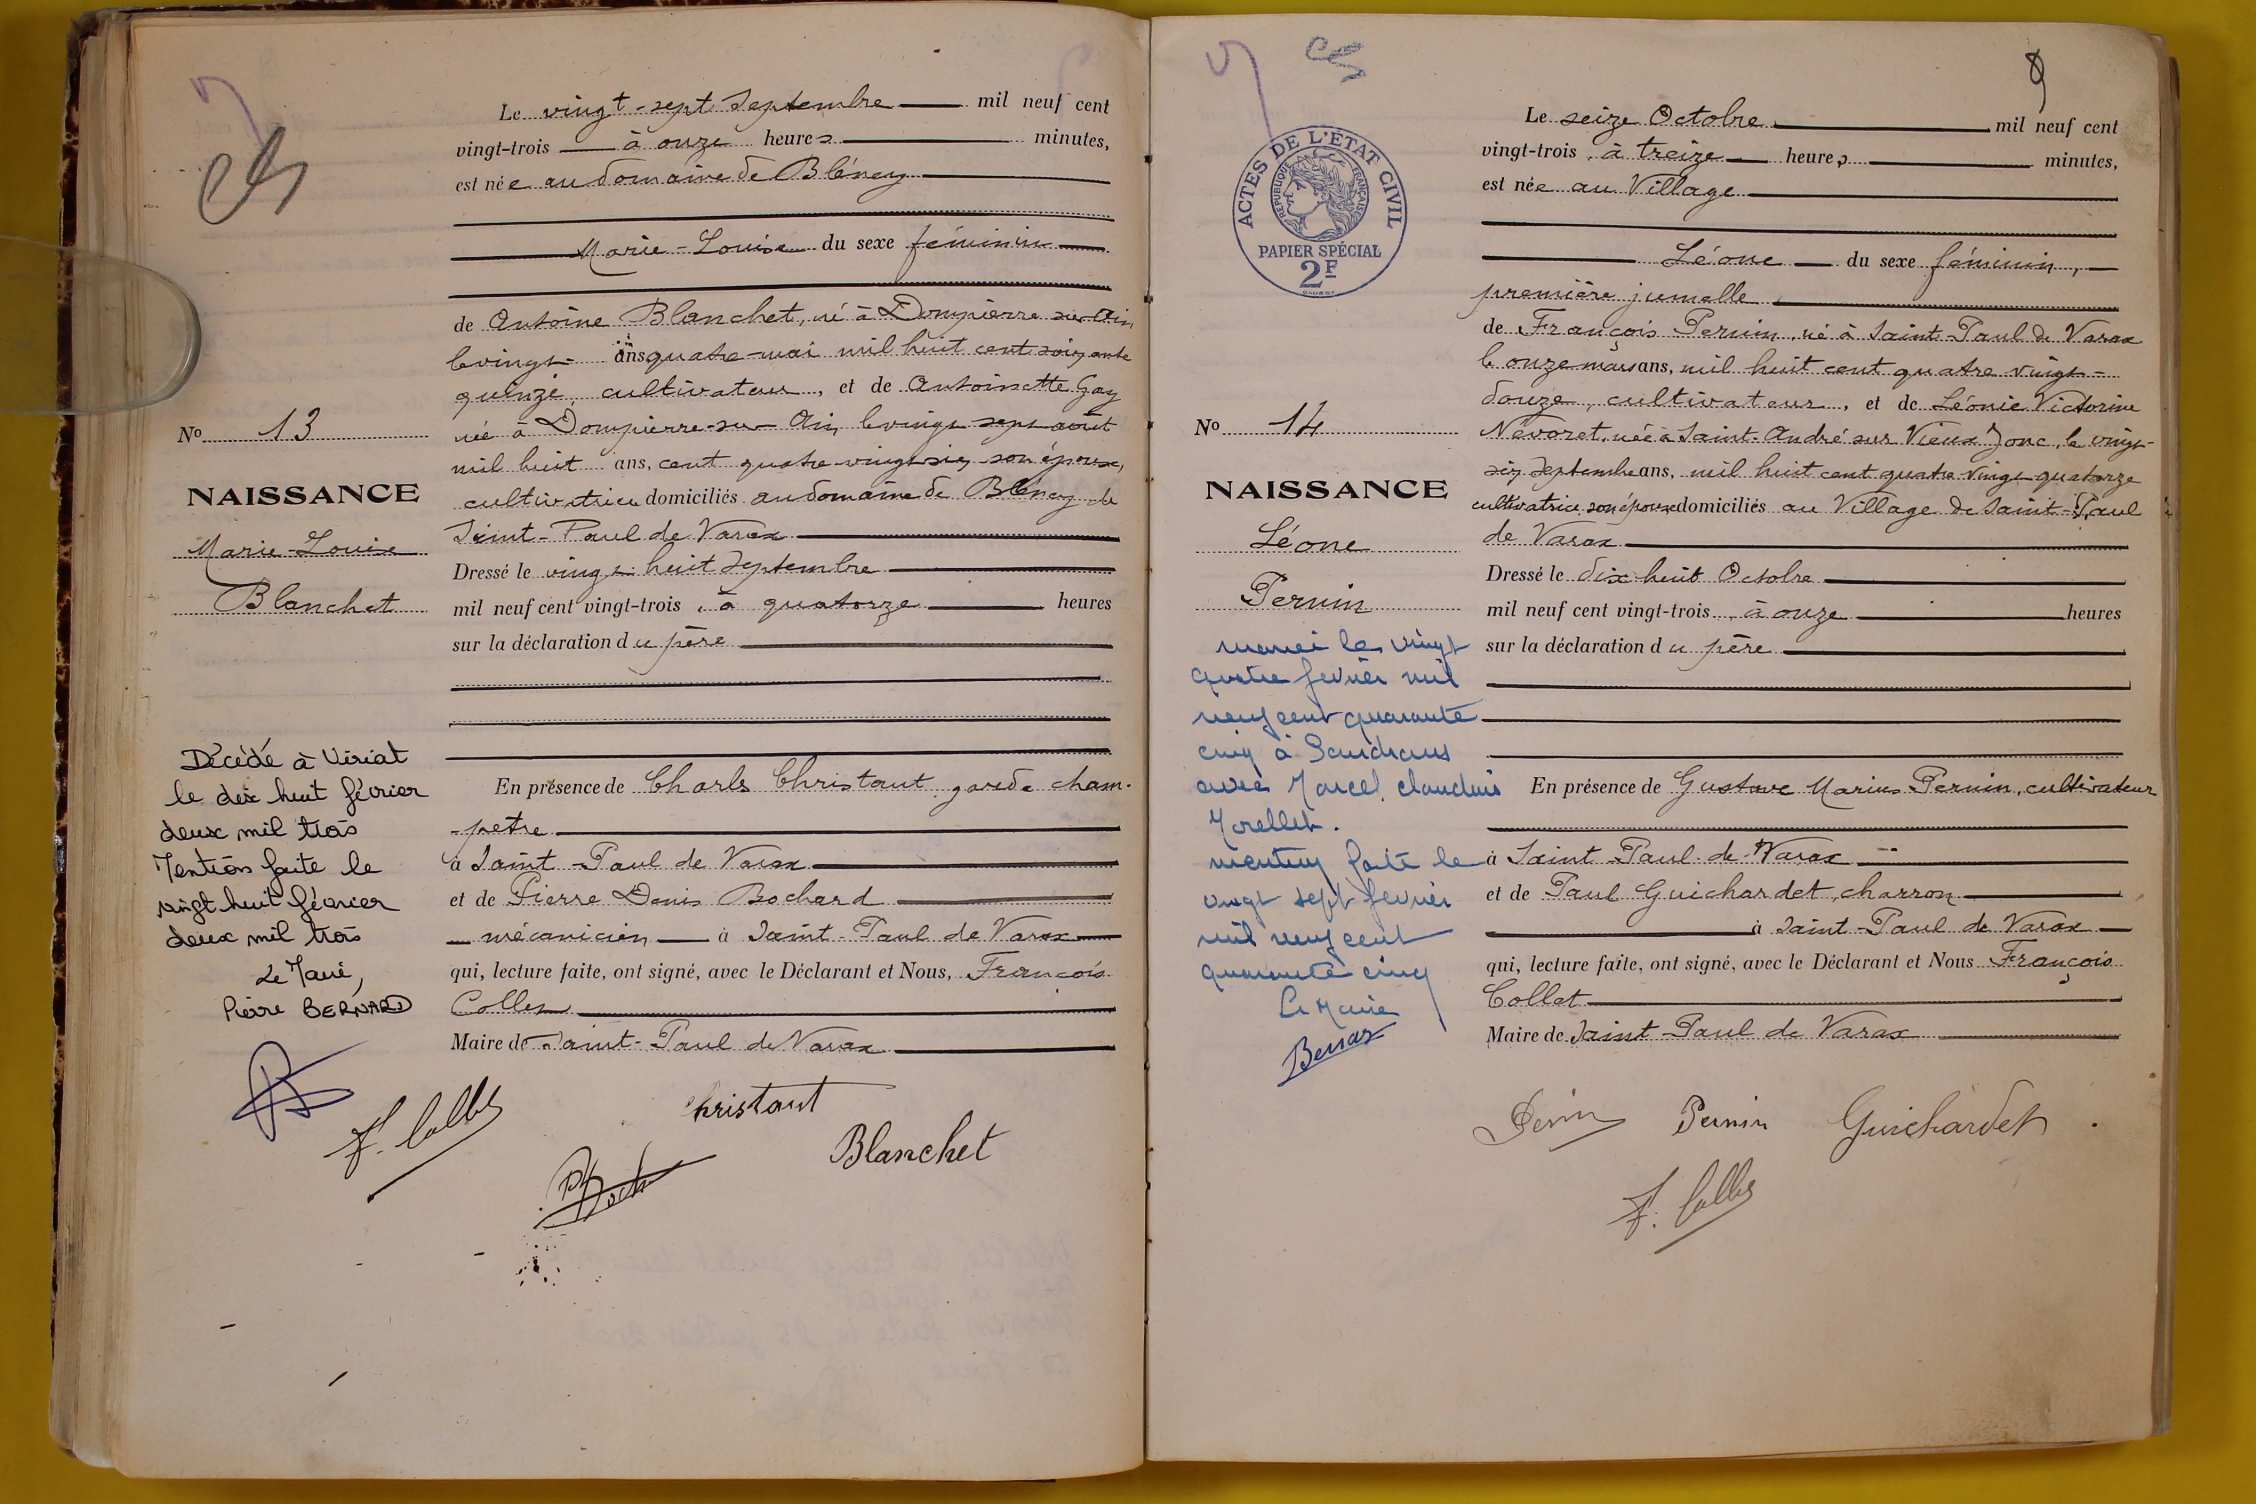 Le vingt-sept Septembre mil neuf cent
vingt-trois à onze heures minutes,
est née au domaine de Bléney
Marie-Louise du sexe féminin
de Antoine Blanchet, né à Dompierre sur Ain
le vingt- ans quatre mai mil huit cent soixante
quinze, cultivateur, et de Antoinette Gay
née à Dompierre-sur Ain le vingt sept août
mil huit ans, cent quatre-vingt six son épouse,
cultivatrice domiciliés au domaine de Bléney de
Saint-Paul de Varax
Dressé le vingt-huit Septembre
mil neuf cent vingt-trois, à quatorze heures
sur la déclaration du père
En présence de Charles Christaut garde cham-
-petre
à Saint-Paul de Varax
et de Pierre Denis Bochard
mécanicien à Saint-Paul de Varax
qui, lecture faite, ont signé, avec le Déclarant et Nous, François
Collet
Maire de Saint-Paul de Varax
F. Collet
Christaut
Blanchet
No 13
NAISSANCE
Marie-Louise
Blanchet
Décédé à Viriat
le dix huit février
deux mil trois
Mention faite le
vingt huit février
deux mil trois
Le Maire,
Pierre BERNARD
ACTES DE L'ÉTAT CIVIL
RÉPUBLIQUE FRANÇAISE
PAPIER SPÉCIAL
2F
9
Le seize Octobre mil neuf cent
vingt-trois, à treize heures minutes,
est née au Village
Léone du sexe féminin,
première jumelle
de François Pernin, né à Saint-Paul de Varax
le onze mars ans, mil huit cent quatre vingt-
douze, cultivateur, et de Léonie Victorine
Névoret, née à Saint-André sur Vieux Jonc, le vingt-
six Septembre ans, mil huit cent quatre vingt quatorze
cultivatrice, son épouse domiciliés au Village de Saint-Paul
de Varax
Dressé le dix-huit Octobre
mil neuf cent vingt-trois, à onze heures
sur la déclaration du père
En présence de Gustave Marius Pernin, cultivateur
à Saint Paul de Varax
et de Paul Guichardet, charron
à Saint-Paul de Varax
qui, lecture faite, ont signé, avec le Déclarant et Nous François
Collet
Maire de Saint-Paul de Varax
Pernin Pernin Guichardet
F. Collet
No 14
NAISSANCE
Léone
Pernin
marié le vingt
quatre février mil
neuf cent quarante
cinq à Sandrans
avec Marcel Claudius
Morellet.
mention faite le
vingt sept février
mil neuf cent
quarante cinq
Le Maire